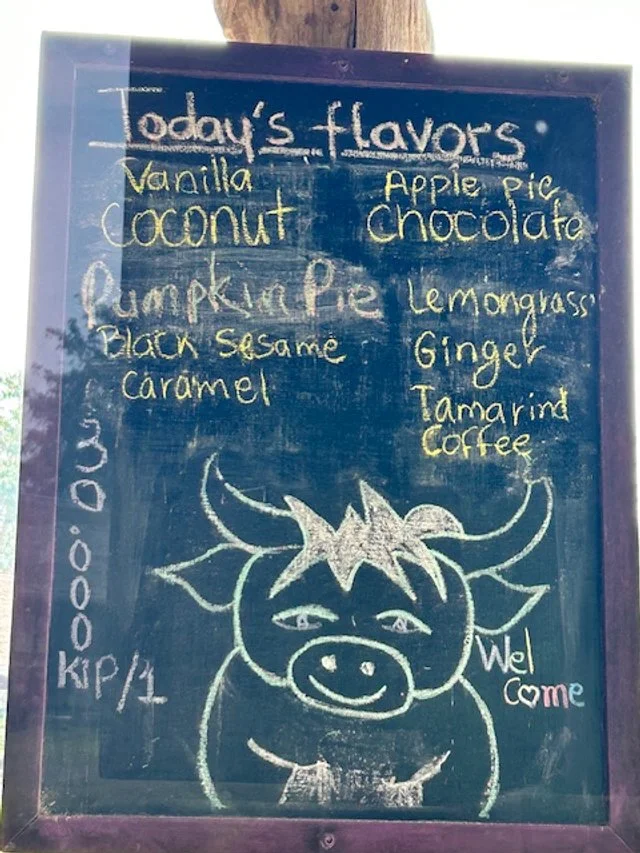 Today's flavors
Vanilla
Coconut
Pumpkin Pie
Black Sesame
Caramel
Apple pie
Chocolate
Lemongrass
Ginger
Tamarind
Coffee
30.000
KIP/1
Wel
Come